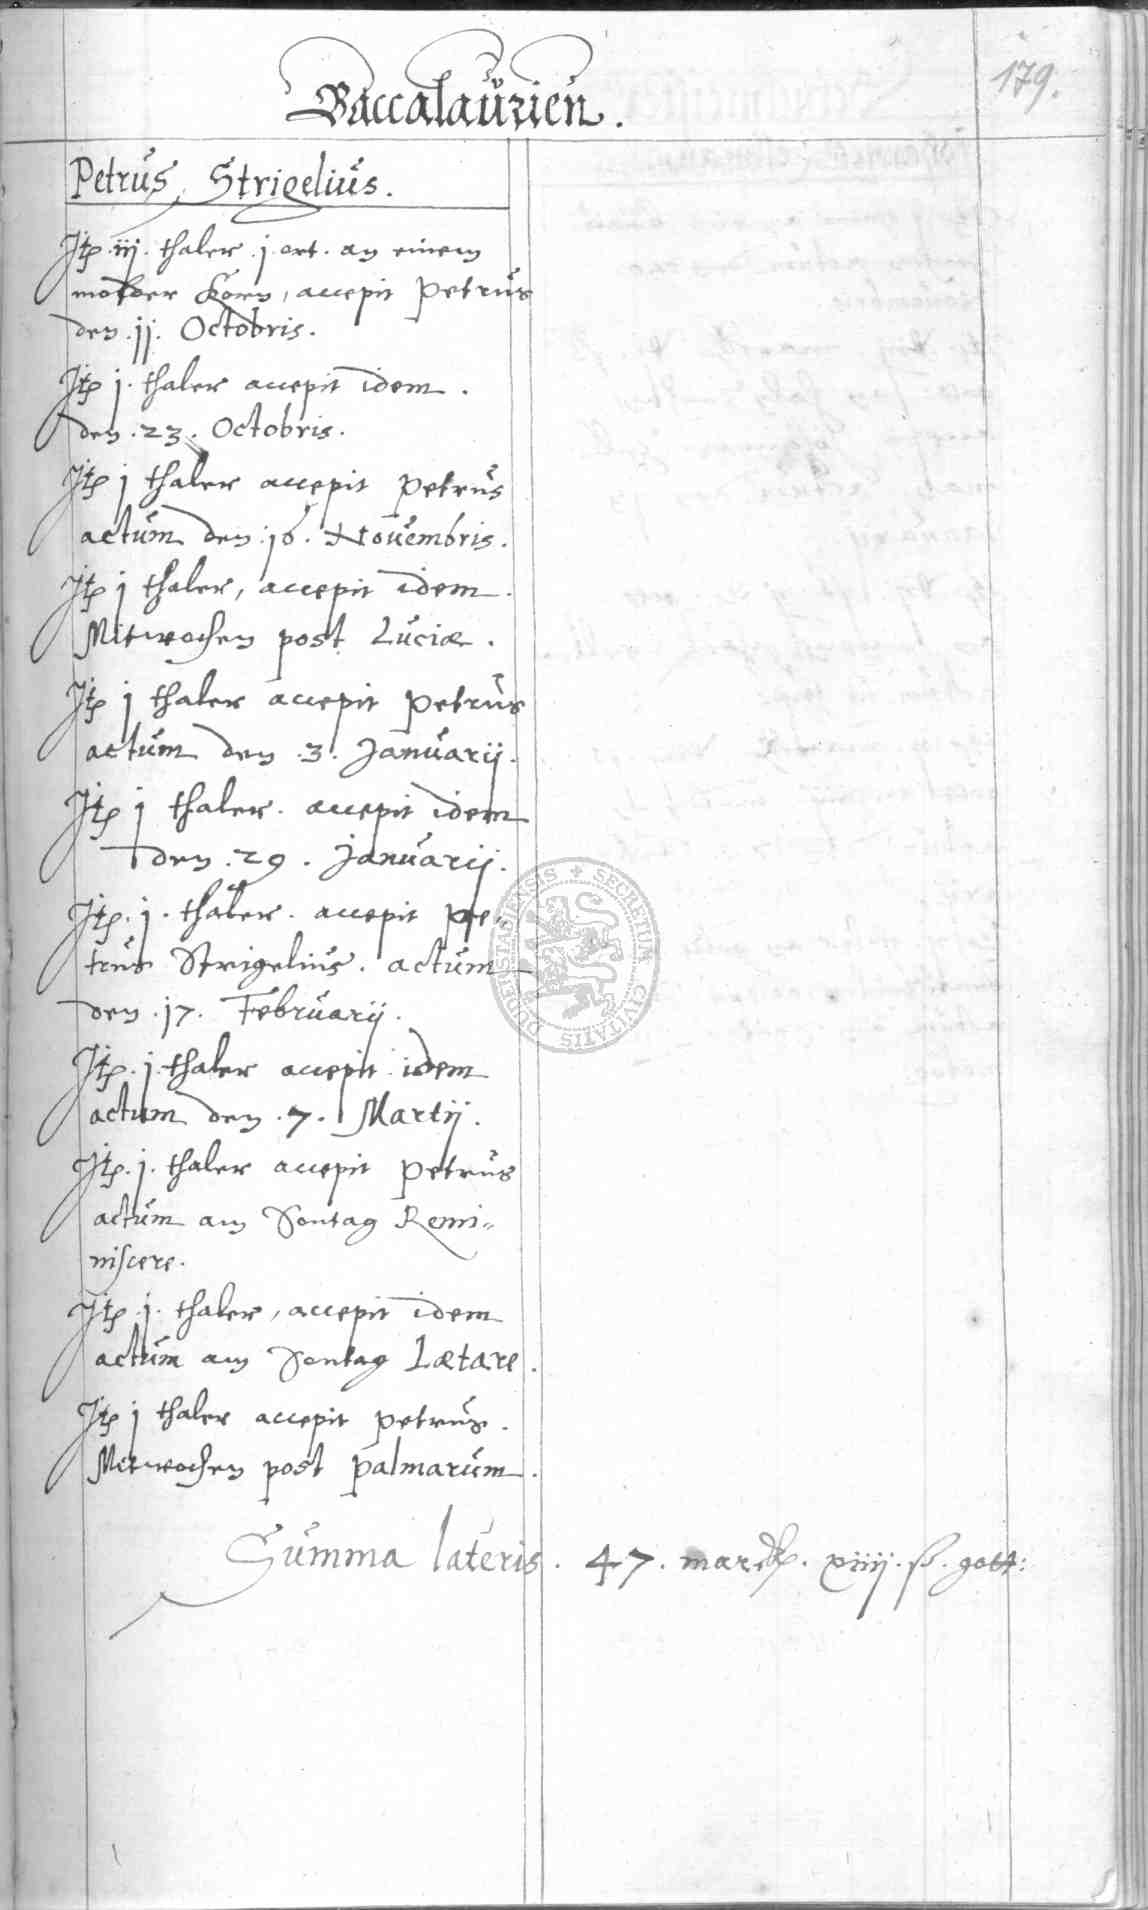 179.
Baccalaurien.
Petrus Strigelius.
Itp .iij. thaler .j. ort. an einem
molder Korn, accepit Petrus
den .jj. Octobris.
Itp j. thaler accepit idem.
den .23. Octobris.
Itp j thaler accepit Petrus
actum den .j6. Novembris.
Itp j thaler, accepit idem.
Mitwochen post Luciæ.
Itp j thaler accepit Petrus
actum den .3. Januarij.
Itp j thaler. accepit idem
den .29. Januarij.
Itp. j. thaler. accepit Pe-
trus Strigelius. actum
den .j7. Februarij.
Itp. j. thaler accepit idem
actum den .7. Martij.
Itp. j. thaler accepit Petrus
actum am Sontag Remi-
niscere.
Itp .j. thaler, accepit idem
actum am Sontag Lætare.
Itp j thaler accepit Petrus.
Mitwochen post Palmarum.
Summa lateris. 47. marck. xiiij. ß. gott:
SECRETUM CIVITATIS DUDERSTADIENSIS